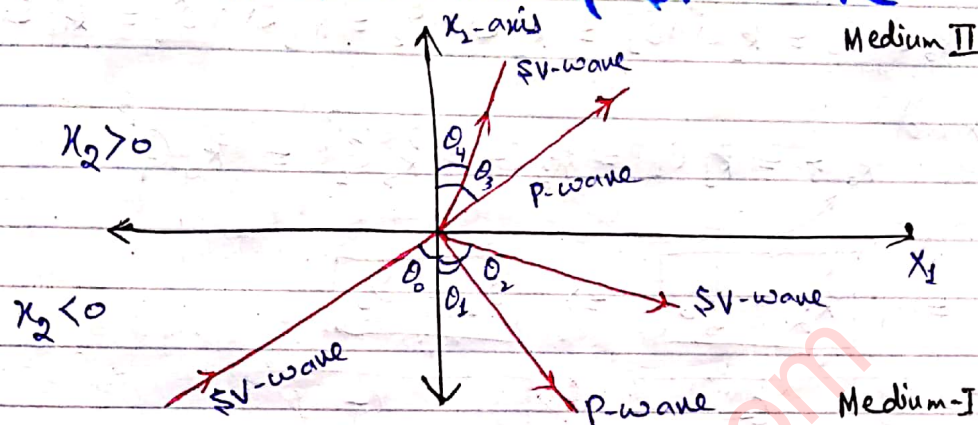 x₂-axis
Medium II
SV-wave
x₂>0
θ₄
θ₃
P-wave
x₁
θ₀
θ₁
θ₂
SV-wave
x₂<0
SV-wave
P-wave
Medium-I